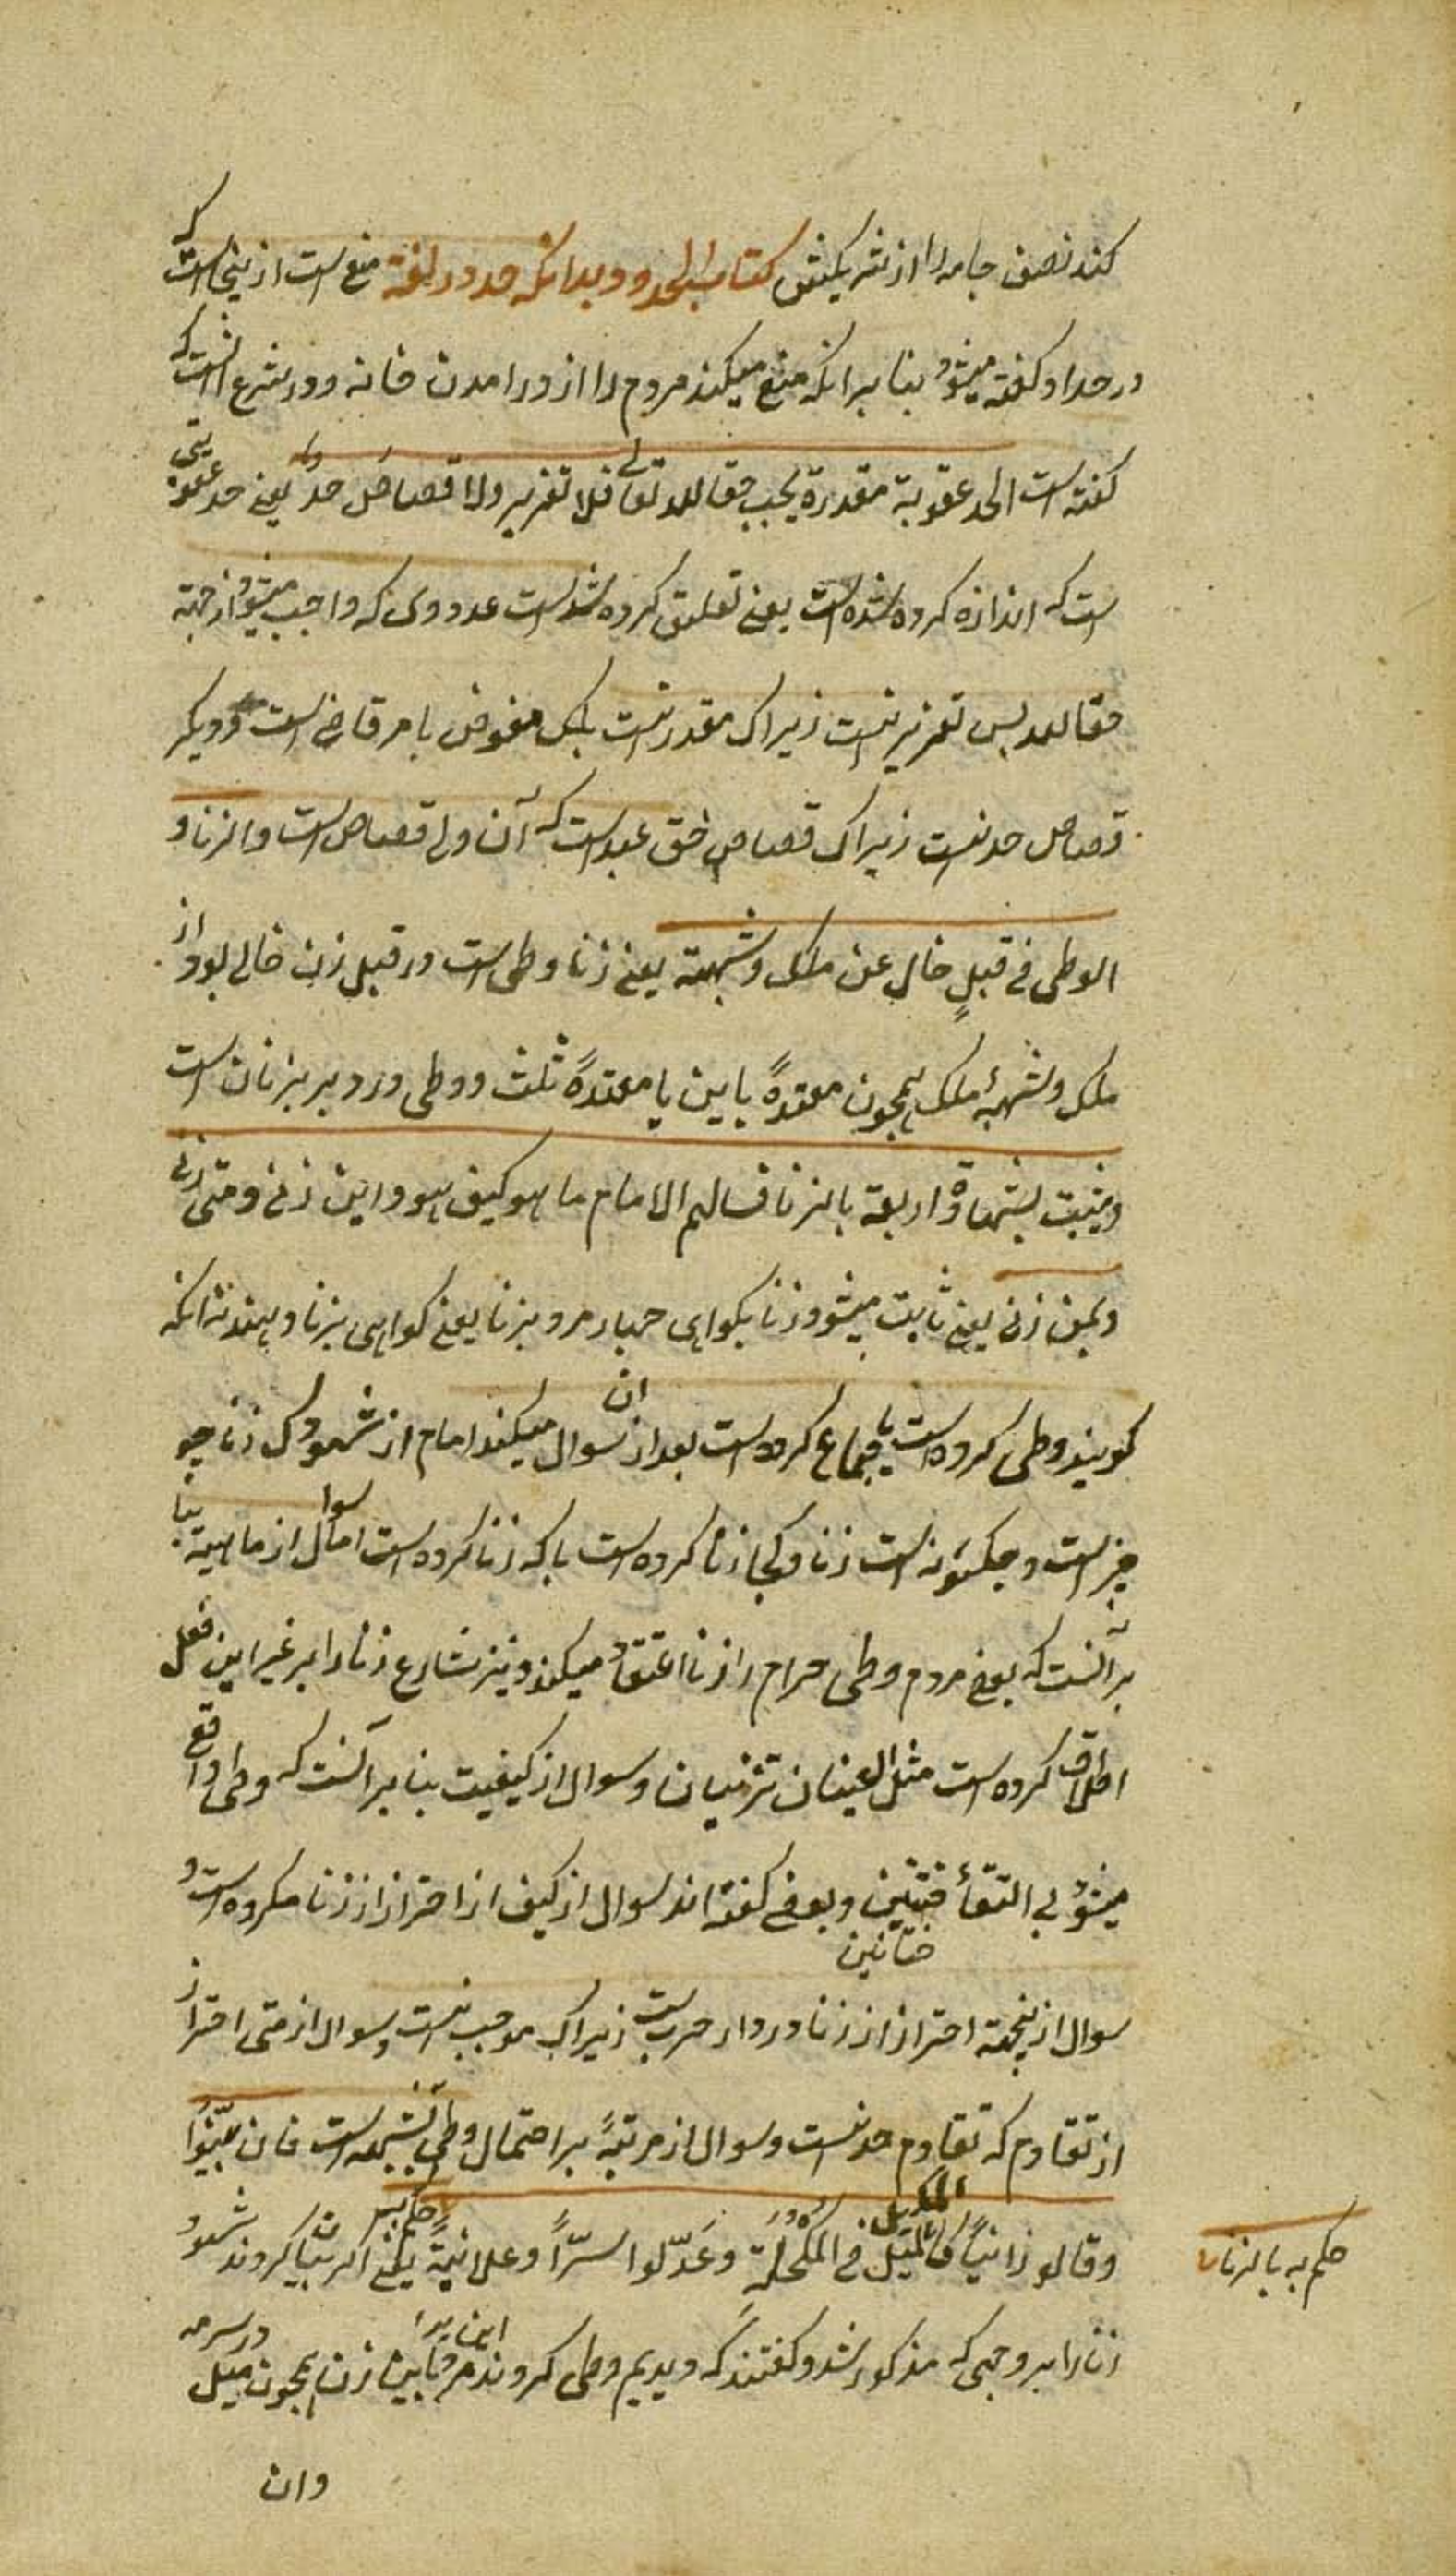 کند نصف جامه را از شریکیش کتاب الحدود بدانکه حد در لغة منع است ازینجاست که
در حداد گفته میشود بنا بر انکه منع میکند مردم را از درامدن خانه و در شرع انست که
گفته است الحد عقوبة مقدرة یجب حقا لله تعالی فلا تعزیر ولا قصاص حد یعنی حد عقوبتی
است که اندازه کرده شده است یعنی تعلیق کرده شده است عددوی که واجب میشود از جهة
حقا لله پس تعزیر نیست زیراک مقدر نیست بلک مفوض بامر قاضی است و دیگر
قصاص حد نیست زیراک قصاص حق عبد است که آن ولی قصاص است والزنا و
الوطی فی قبلٍ خالٍ عن ملک وشبهة یعنی زنا وطی است در قبل زن خالی بود از
ملک وشبهۀ ملک همچون معتدۀ باین یا معتدۀ ثلث و وطی در دبر بزنان است
ویثبت بشهادة اربعة بالزنا فسالهم الامام ما هو کیف هو و این زنی ومتی زنی
وبمن زنی یعنی ثابت میشود زنا بکواهی چهار مرد بزنا یعنی کواهی بزنا دهند نه انکه
کویند وطی کرده است یا جماع کرده است بعد از ان سوال میکند امام از شهود ک زنا چه
چیز است و چکونه است زنا و کجا زنا کرده است باکه زنا کرده است اما سوال از ماهیة بنا
بر آنست که بعضی مردم وطی حرام را زنا اعتقاد میکند و نیز شارع زنا را بر غیر این فعل
اطلاق کرده است مثل العینان تزنیان و سوال از کیفیت بنا بر آنست که وطی واقع
میشود بی التقأ ختنین و بعضی کفته اند سوال از کیف از احتراز از زنا مکروه است و
ختانین
سوال از اینجهة احتراز از زنا در دار حرب است زیراک موجب نیست و سوال از متی احتراز
از تقادم که تقادم حد نیست و سوال از مزنیۀ بر احتمال وطی بشبهه است فان بیّنوا
وقالو زانیاً کالمیل فی المکحلة وعدّلوا سرّاً وعلانیةً حکم به یعنی اکر بیان کردند شهود
حکم به بالزنا
زنا را بر وجهی که مذکور شد و کفتند که دیدیم وطی کردند این مرد را باین زن همچون میل در سرمه
وان